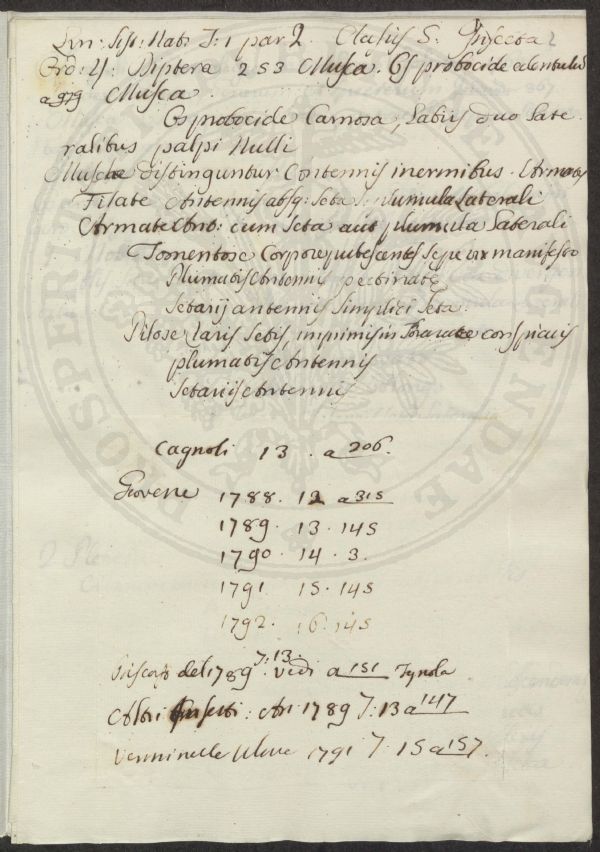 Lin: Sist: Nat: T: 1 par 2. Classis 5: Insecta 2
Ord: 4: Diptera 253 Musca. Os proboscide
a 979 Musca.
Os proboscide Carnosa, Labiis duo Late
ralibus palpi Nulli
Musche distinguntur Contennis inermibus. Armatis
Filate Antennis absq: seta, plumula Laterali
Armate Ant: cum Seta aut plumula Laterali
Tomentose Corpore pubescentes, sepe vix manifesto
Plumatis Antennis pectinate
Setarij antennis simplici seta.
Pilose raris Setis, imprimis in Thorace conspicuis
plumatis Antennis
Setariis Antennis
Cagnoli 13. a 206.
Giovene 1788. 12 a 315
1789. 13. 145
1790. 14. 3.
1791 15. 145
1792. 16. 145
del 1789 T: 13. vedi a 151 Tynola
Altri Insetti: An: 1789 T: 13 a 147
Verminelle Ulive 1791 T. 15 a 157.
PROSPERITATI
AUGENDAE